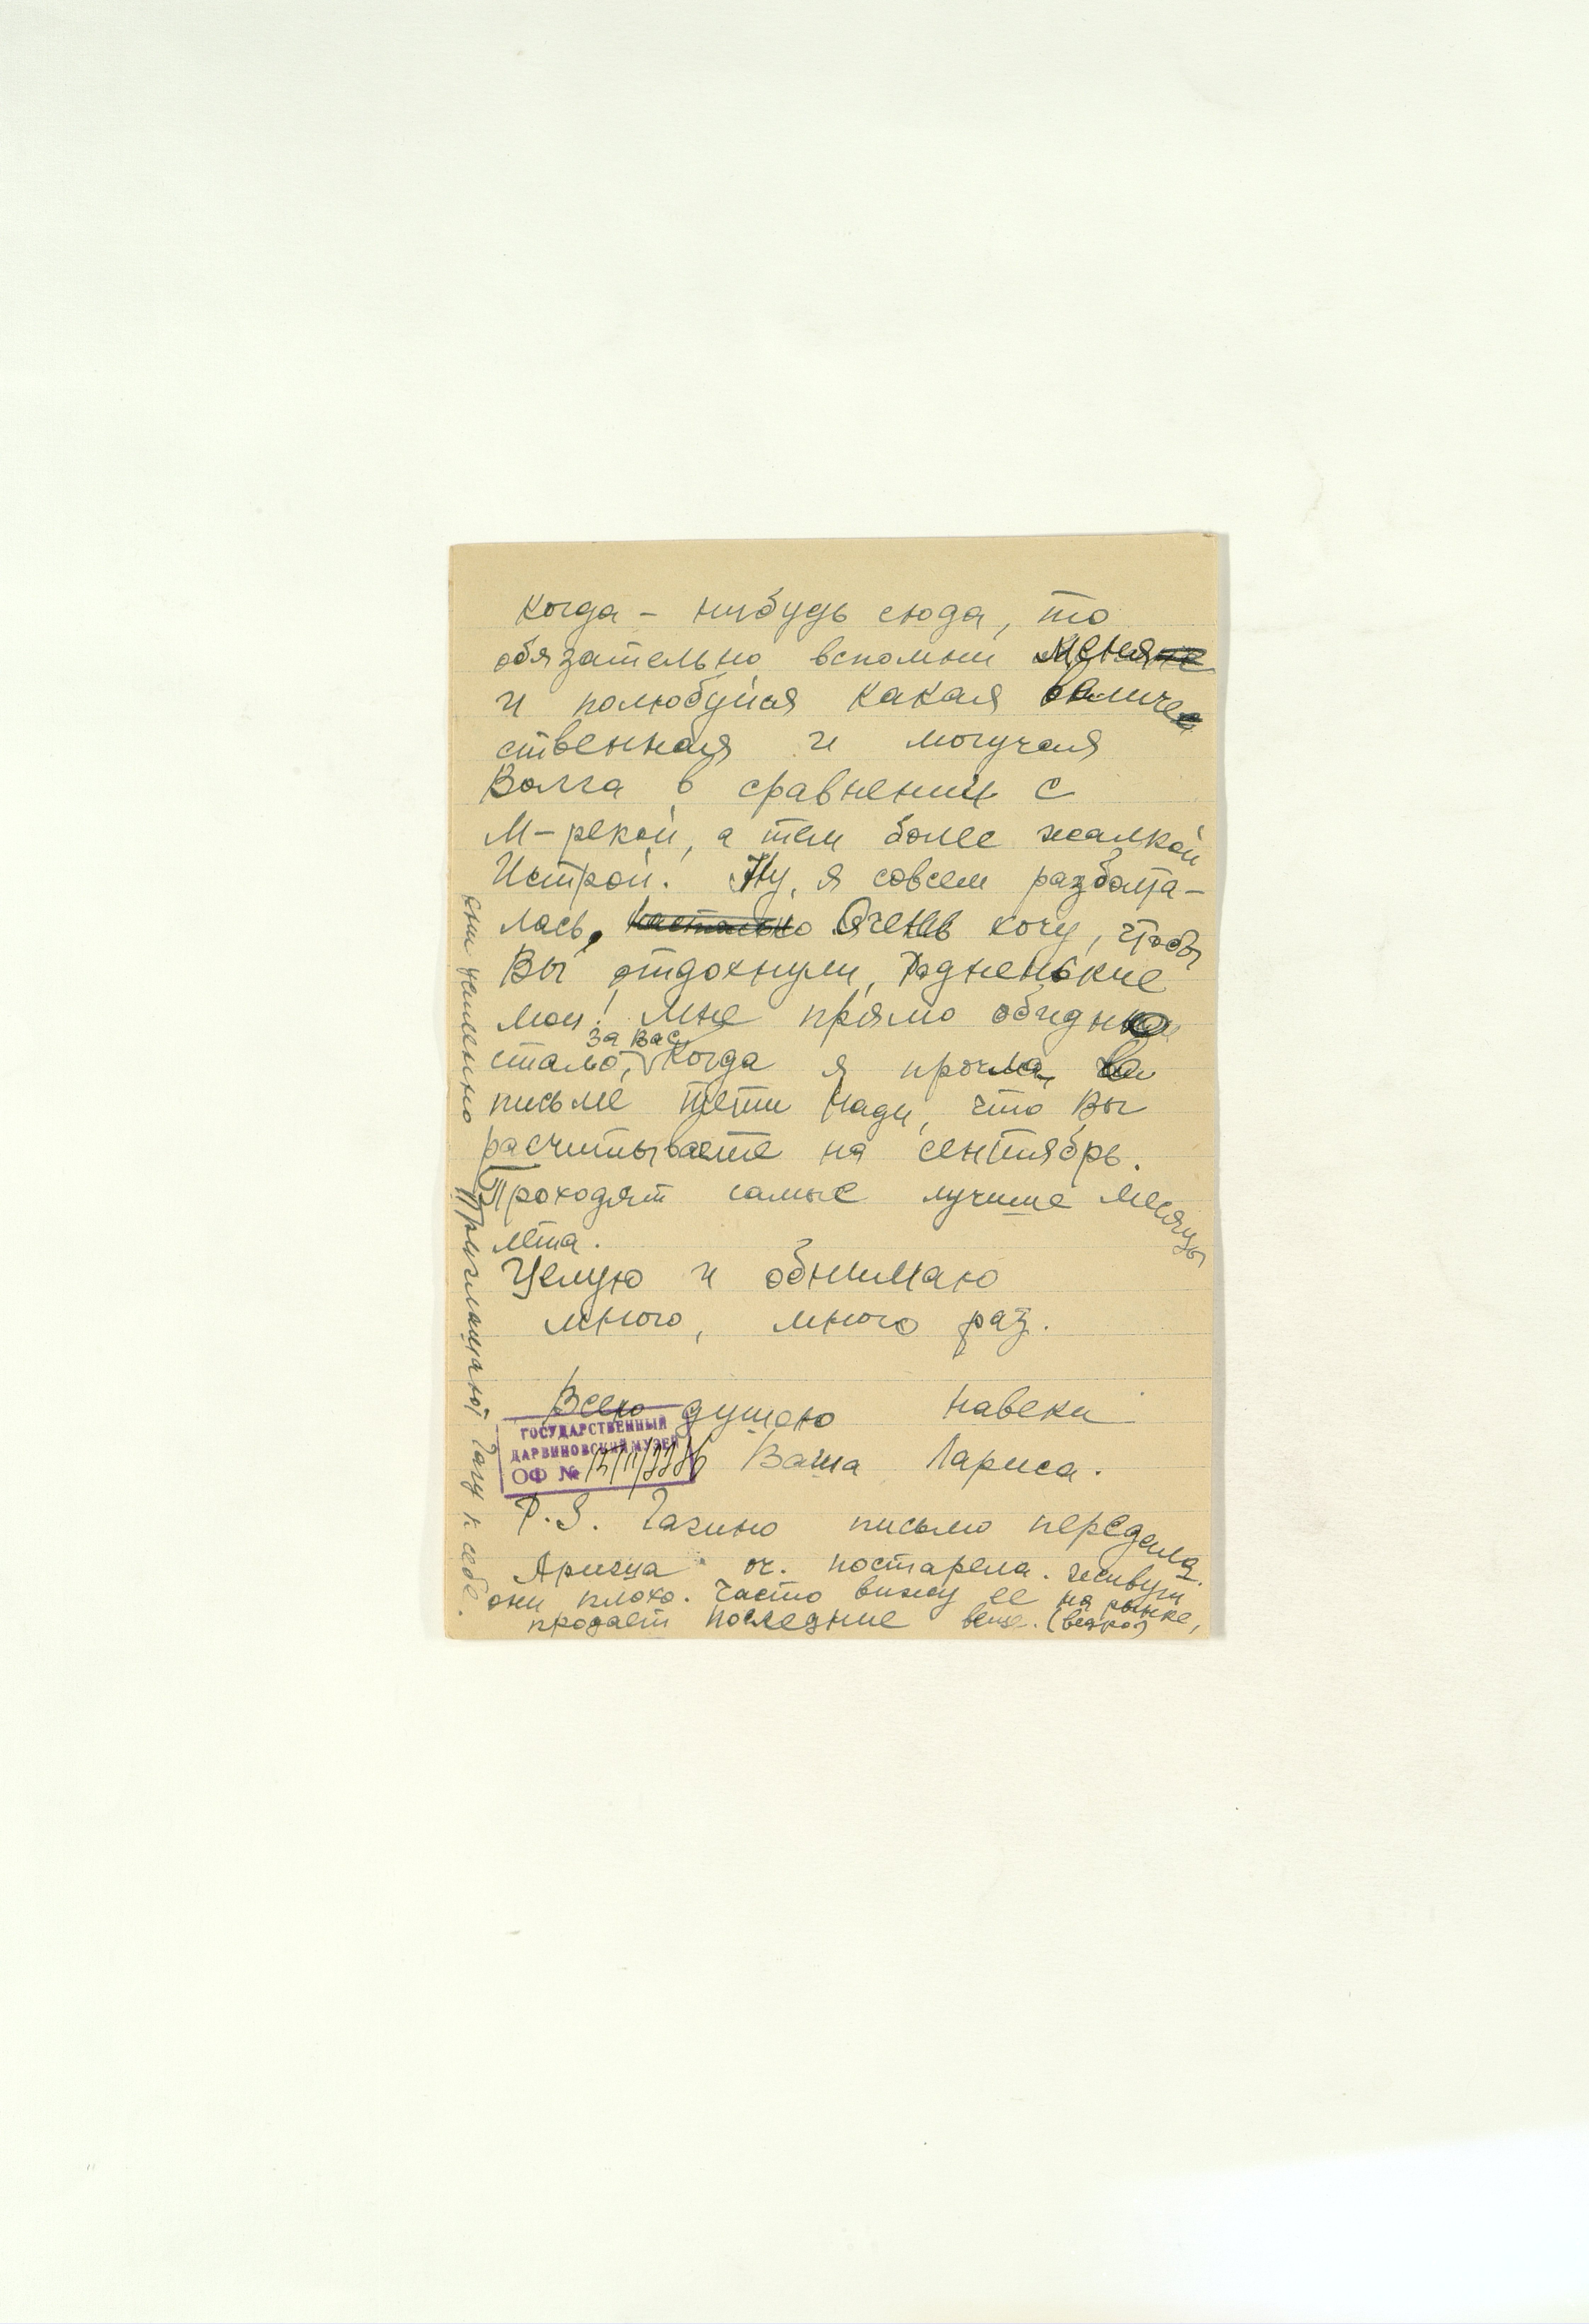 когда – нибудь сюда, то
обязательно вспомни меня
и полюбуйся какая величе
ственная и могучая
Волга в сравнении с
М-рекой, а тем более жалкой
Истрой. Ну, я совсем разболта-
лась. Очень хочу, чтобы
Вы отдохнули, родненькие
мои! Мне прямо обидно
за вас
стало, когда я прочла в
письме тети Нади, что Вы
расчитываете на сентябрь.
Проходят самые лучшие месяцы
лета.
Целую и обнимаю
много, много раз.
Всею душою навеки
Ваша Лариса.
ГОСУДАРСТВЕННЫЙ
ДАРВИНОВСКИЙ МУЗЕЙ
ОФ №
P.S. Галино письмо передала.
оч. постарела. живут
они плохо. Часто вижу ее на рынке,
продает последние вещи. (ведро)
они усиленно приглашают Галу к себе.